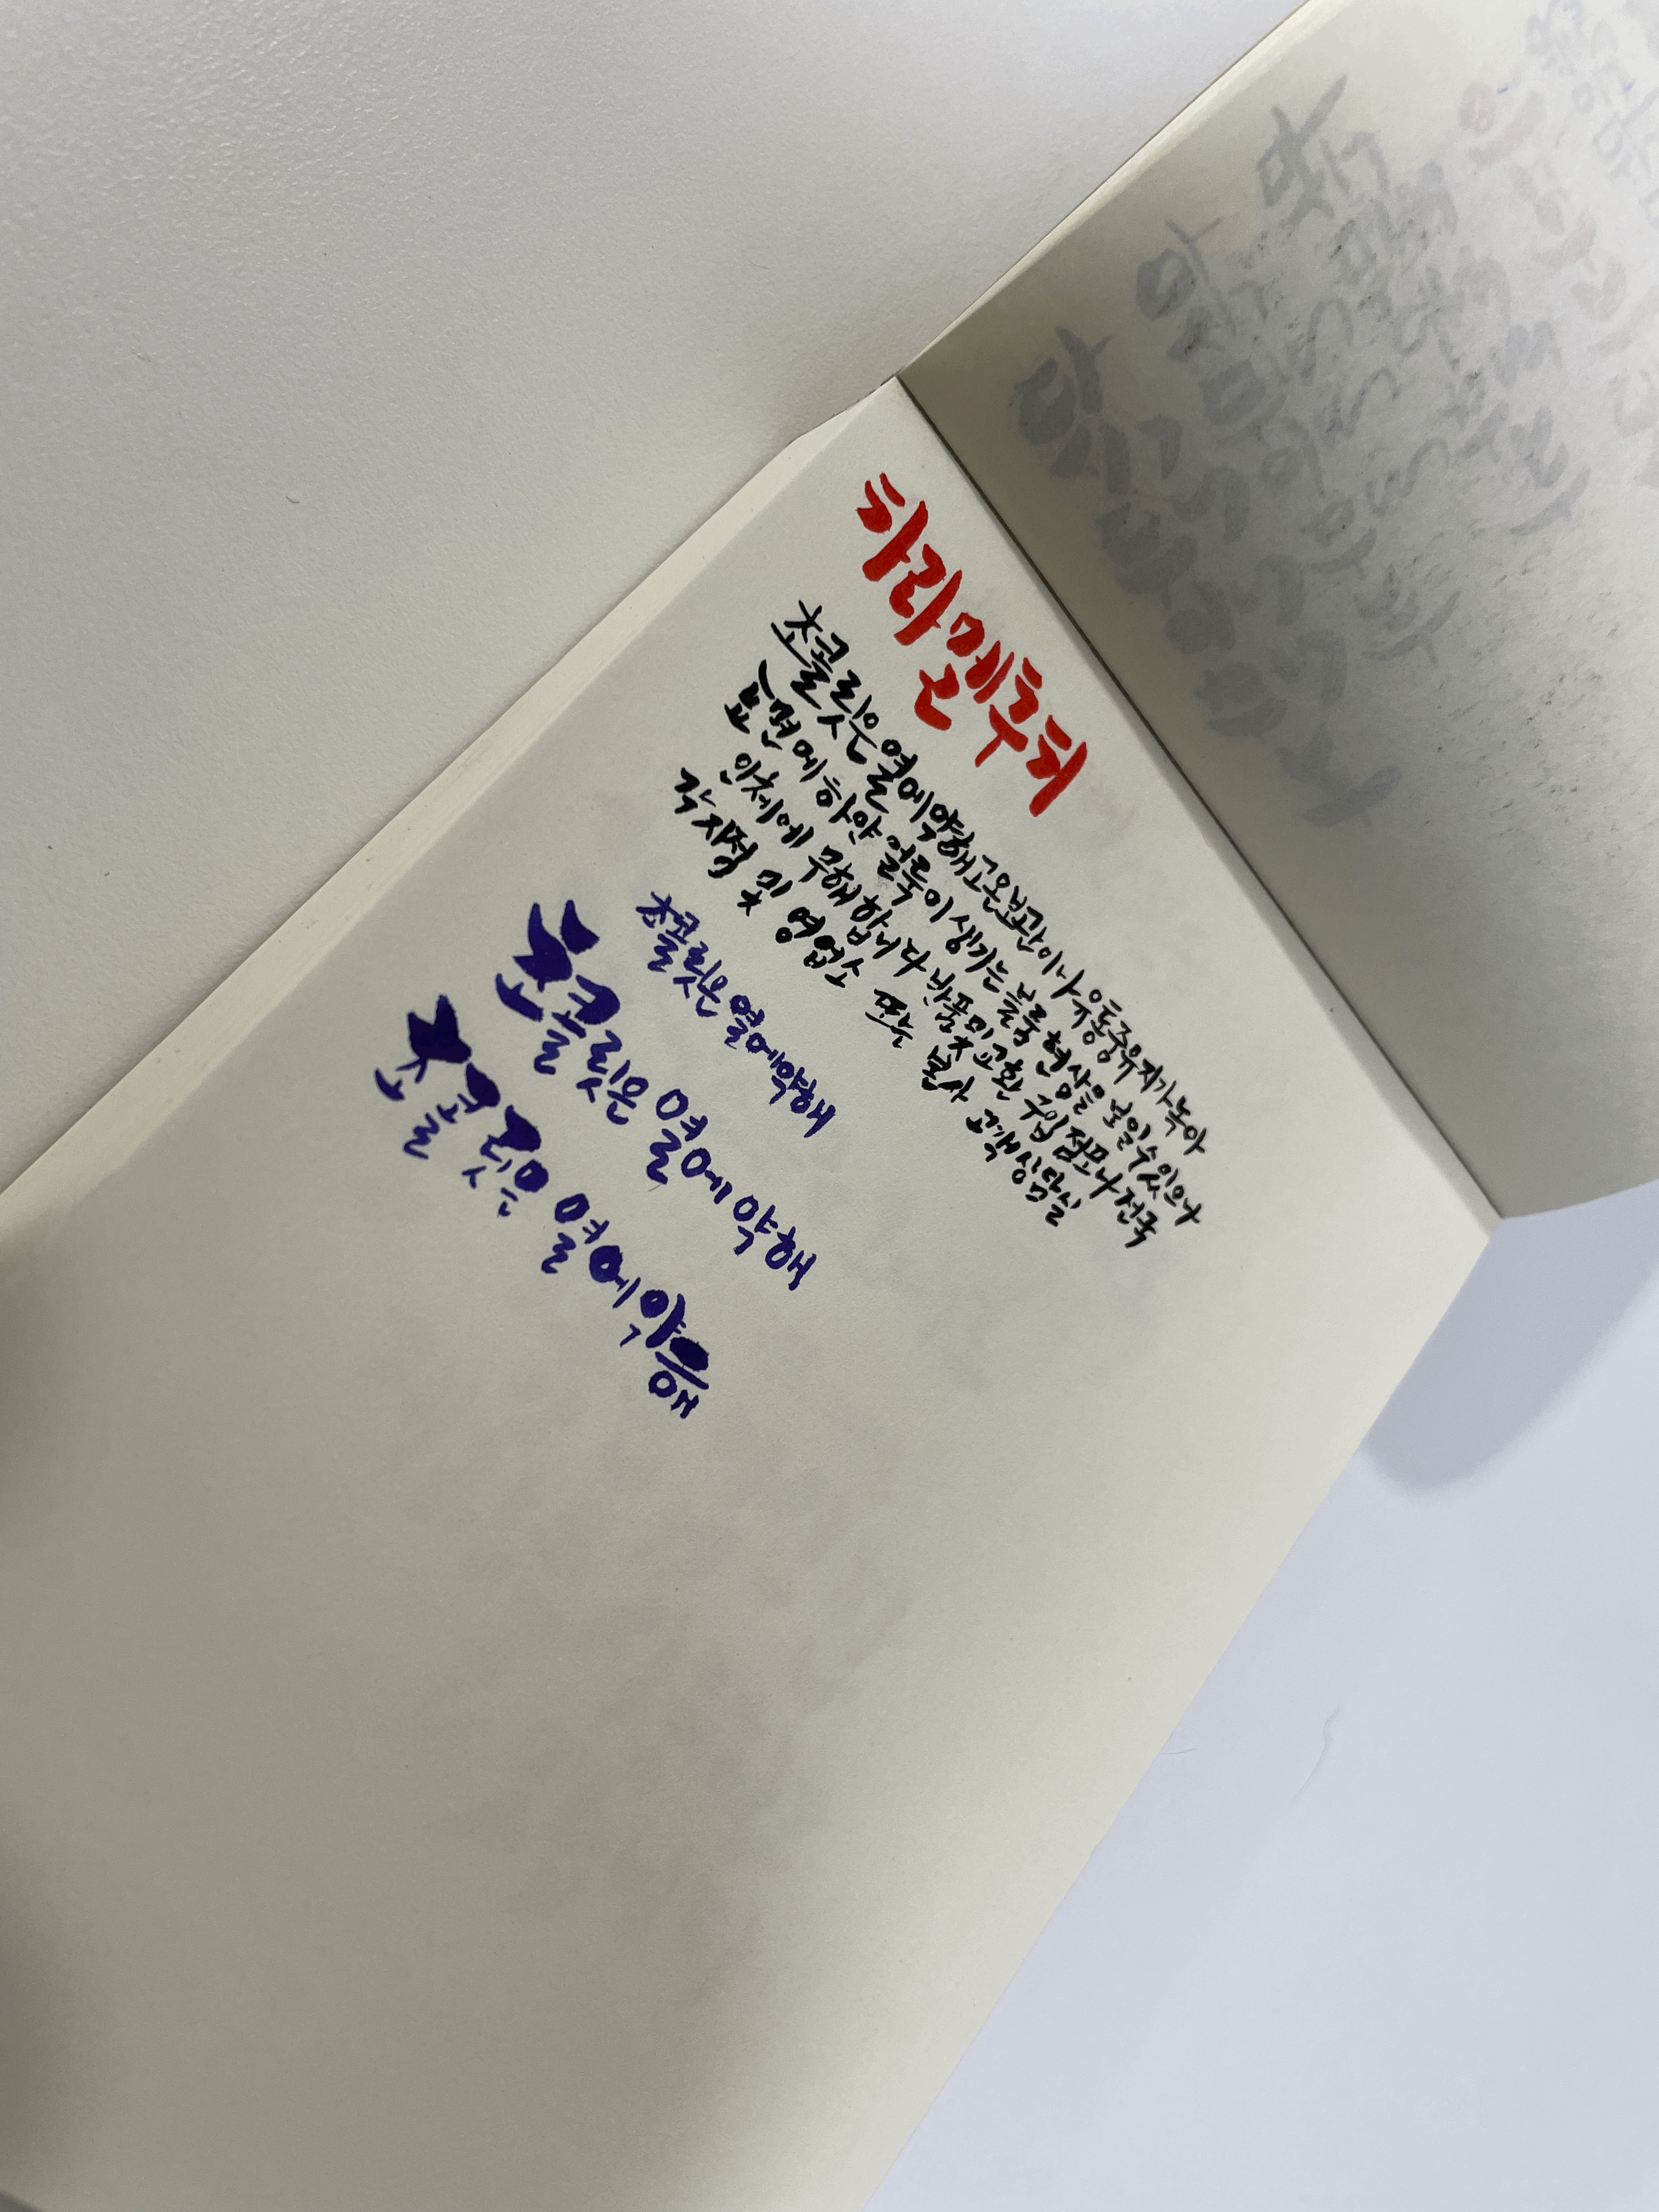 카라멜츄러
초콜릿은 열에약해고온보관이나유통중유지가녹아
표면에 하얀 얼룩이 생기는 블룸 현상을 보일수있으나
인체에 무해합니다 반품및교환 구입 점포나 전국
각지점 및 영업소 또는 본사 고객상담실
초콜릿은 열에약해
초콜릿은 열에 약해
초콜릿은 열에 약해